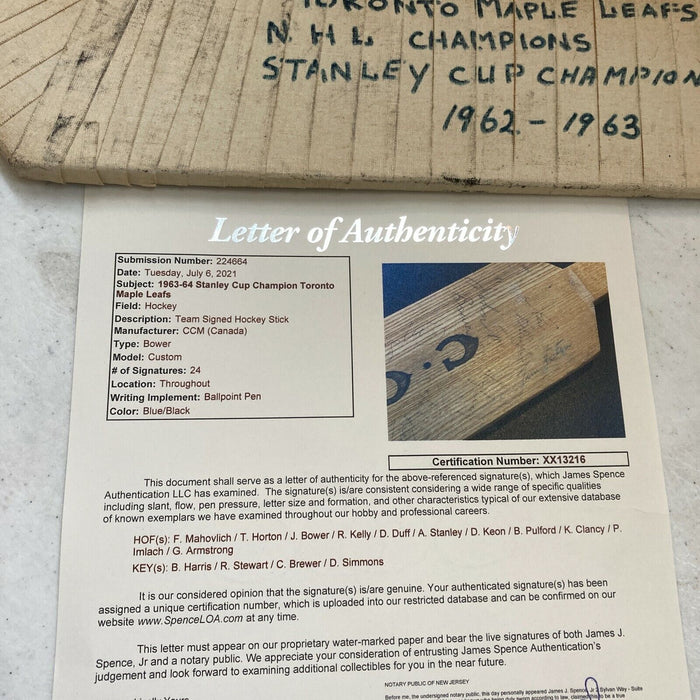 TORONTO MAPLE LEAFS
N. H L. CHAMPIONS
STANLEY CUP CHAMPION
1962 - 1963
Letter of Authenticity
Submission Number: 224664
Date: Tuesday, July 6, 2021
Subject: 1963-64 Stanley Cup Champion Toronto
Maple Leafs
Field: Hockey
Description: Team Signed Hockey Stick
Manufacturer: CCM (Canada)
Type: Bower
Model: Custom
# of Signatures: 24
Location: Throughout
Writing Implement: Ballpoint Pen
Color: Blue/Black
Certification Number: XX13216
This document shall serve as a letter of authenticity for the above-referenced signature(s), which James Spence
Authentication LLC has examined. The signature(s) is/are consistent considering a wide range of specific qualities
including slant, flow, pen pressure, letter size and formation, and other characteristics typical of our extensive database
of known exemplars we have examined throughout our hobby and professional careers.
HOF(s): F. Mahovlich / T. Horton / J. Bower / R. Kelly / D. Duff / A. Stanley / D. Keon / B. Pulford / K. Clancy / P.
Imlach / G. Armstrong
KEY(s): B. Harris / R. Stewart / C. Brewer / D. Simmons
It is our considered opinion that the signature(s) is/are genuine. Your authenticated signature(s) has been
assigned a unique certification number, which is uploaded into our restricted database and can be confirmed on our
website www.SpenceLOA.com at any time.
This letter must appear on our proprietary water-marked paper and bear the live signatures of both James J.
Spence, Jr and a notary public. We appreciate your consideration of entrusting James Spence Authentication's
judgement and look forward to examining additional collectibles for you in the near future.
NOTARY PUBLIC OF NEW JERSEY
Before me, the undersigned notary public, this day personally appeared James J. Spence, Jr